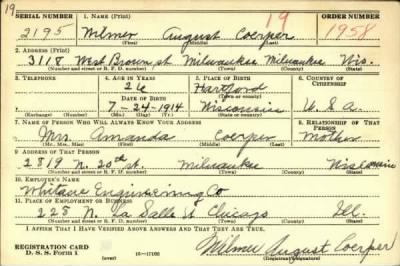 19
SERIAL NUMBER 1. NAME (Print) 19 ORDER NUMBER
2195 Wilmer August Coerper 1958
(First) (Middle) (Last)
2. ADDRESS (Print)
3118 West Brown st Milwaukee Milwaukee Wis.
(Number and street or R. F. D. number) (Town) (County) (State)
3. TELEPHONE 4. AGE IN YEARS 5. PLACE OF BIRTH 6. COUNTRY OF CITIZENSHIP
26 Hartford
DATE OF BIRTH (Town or county)
7-24-1914 Wisconsin U.S.A.
(Exchange) (Number) (Mo.) (Day) (Yr.) (State or country)
7. NAME OF PERSON WHO WILL ALWAYS KNOW YOUR ADDRESS 8. RELATIONSHIP OF THAT PERSON
Mrs. Amanda Coerper Mother
(Mr., Mrs., Miss) (First) (Middle) (Last)
9. ADDRESS OF THAT PERSON
2819 N. 20th st. Milwaukee Wisconsin
(Number and street or R. F. D. number) (Town) (County) (State)
10. EMPLOYER'S NAME
Engineering Co
11. PLACE OF EMPLOYMENT OR BUSINESS
225 N. La Salle st Chicago Ill.
(Number and street or R. F. D. number) (Town) (County) (State)
I AFFIRM THAT I HAVE VERIFIED ABOVE ANSWERS AND THAT THEY ARE TRUE.
REGISTRATION CARD
D. S. S. Form 1 (over) 16—17105 Wilmer August Coerper